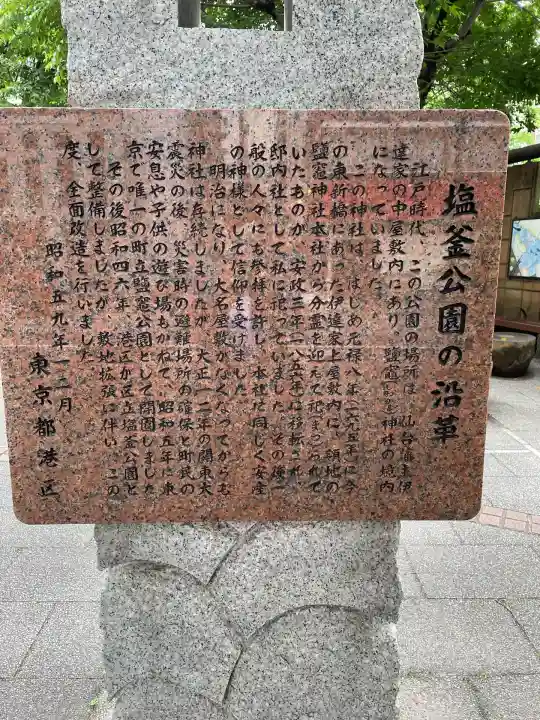 塩釜公園の沿革
江戸時代、この公園の場所は、仙台藩主伊
達家の中屋敷内にあり、鹽竈神社の境内
になっていました。
この神社は、はじめ元禄八年(一六九五年)に今
の東新橋にあった伊達家上屋敷内に、領地の
鹽竈神社本社から分霊を迎えて祀まつられて
いたものが、安政三年(一八五六年)に移転され、
邸内社として私に祀っていました。その後一
般の人々にも参拝を許し、本社と同じく安産
の神様として信仰を受けました。
明治になり、大名屋敷がなくなってからも
神社は存続しましたが、大正一二年の関東大
震災の後、災害時の避難場所の確保と町民の
安息や子供の遊び場もかねて、昭和五年に東
京で唯一の町立鹽竈公園として開園しました。
その後昭和四六年、港区が区立塩釜公園と
して整備しましたが、敷地拡張に伴い、この
度、全面改造を行いました。
昭和五九年一二月
東京都港区